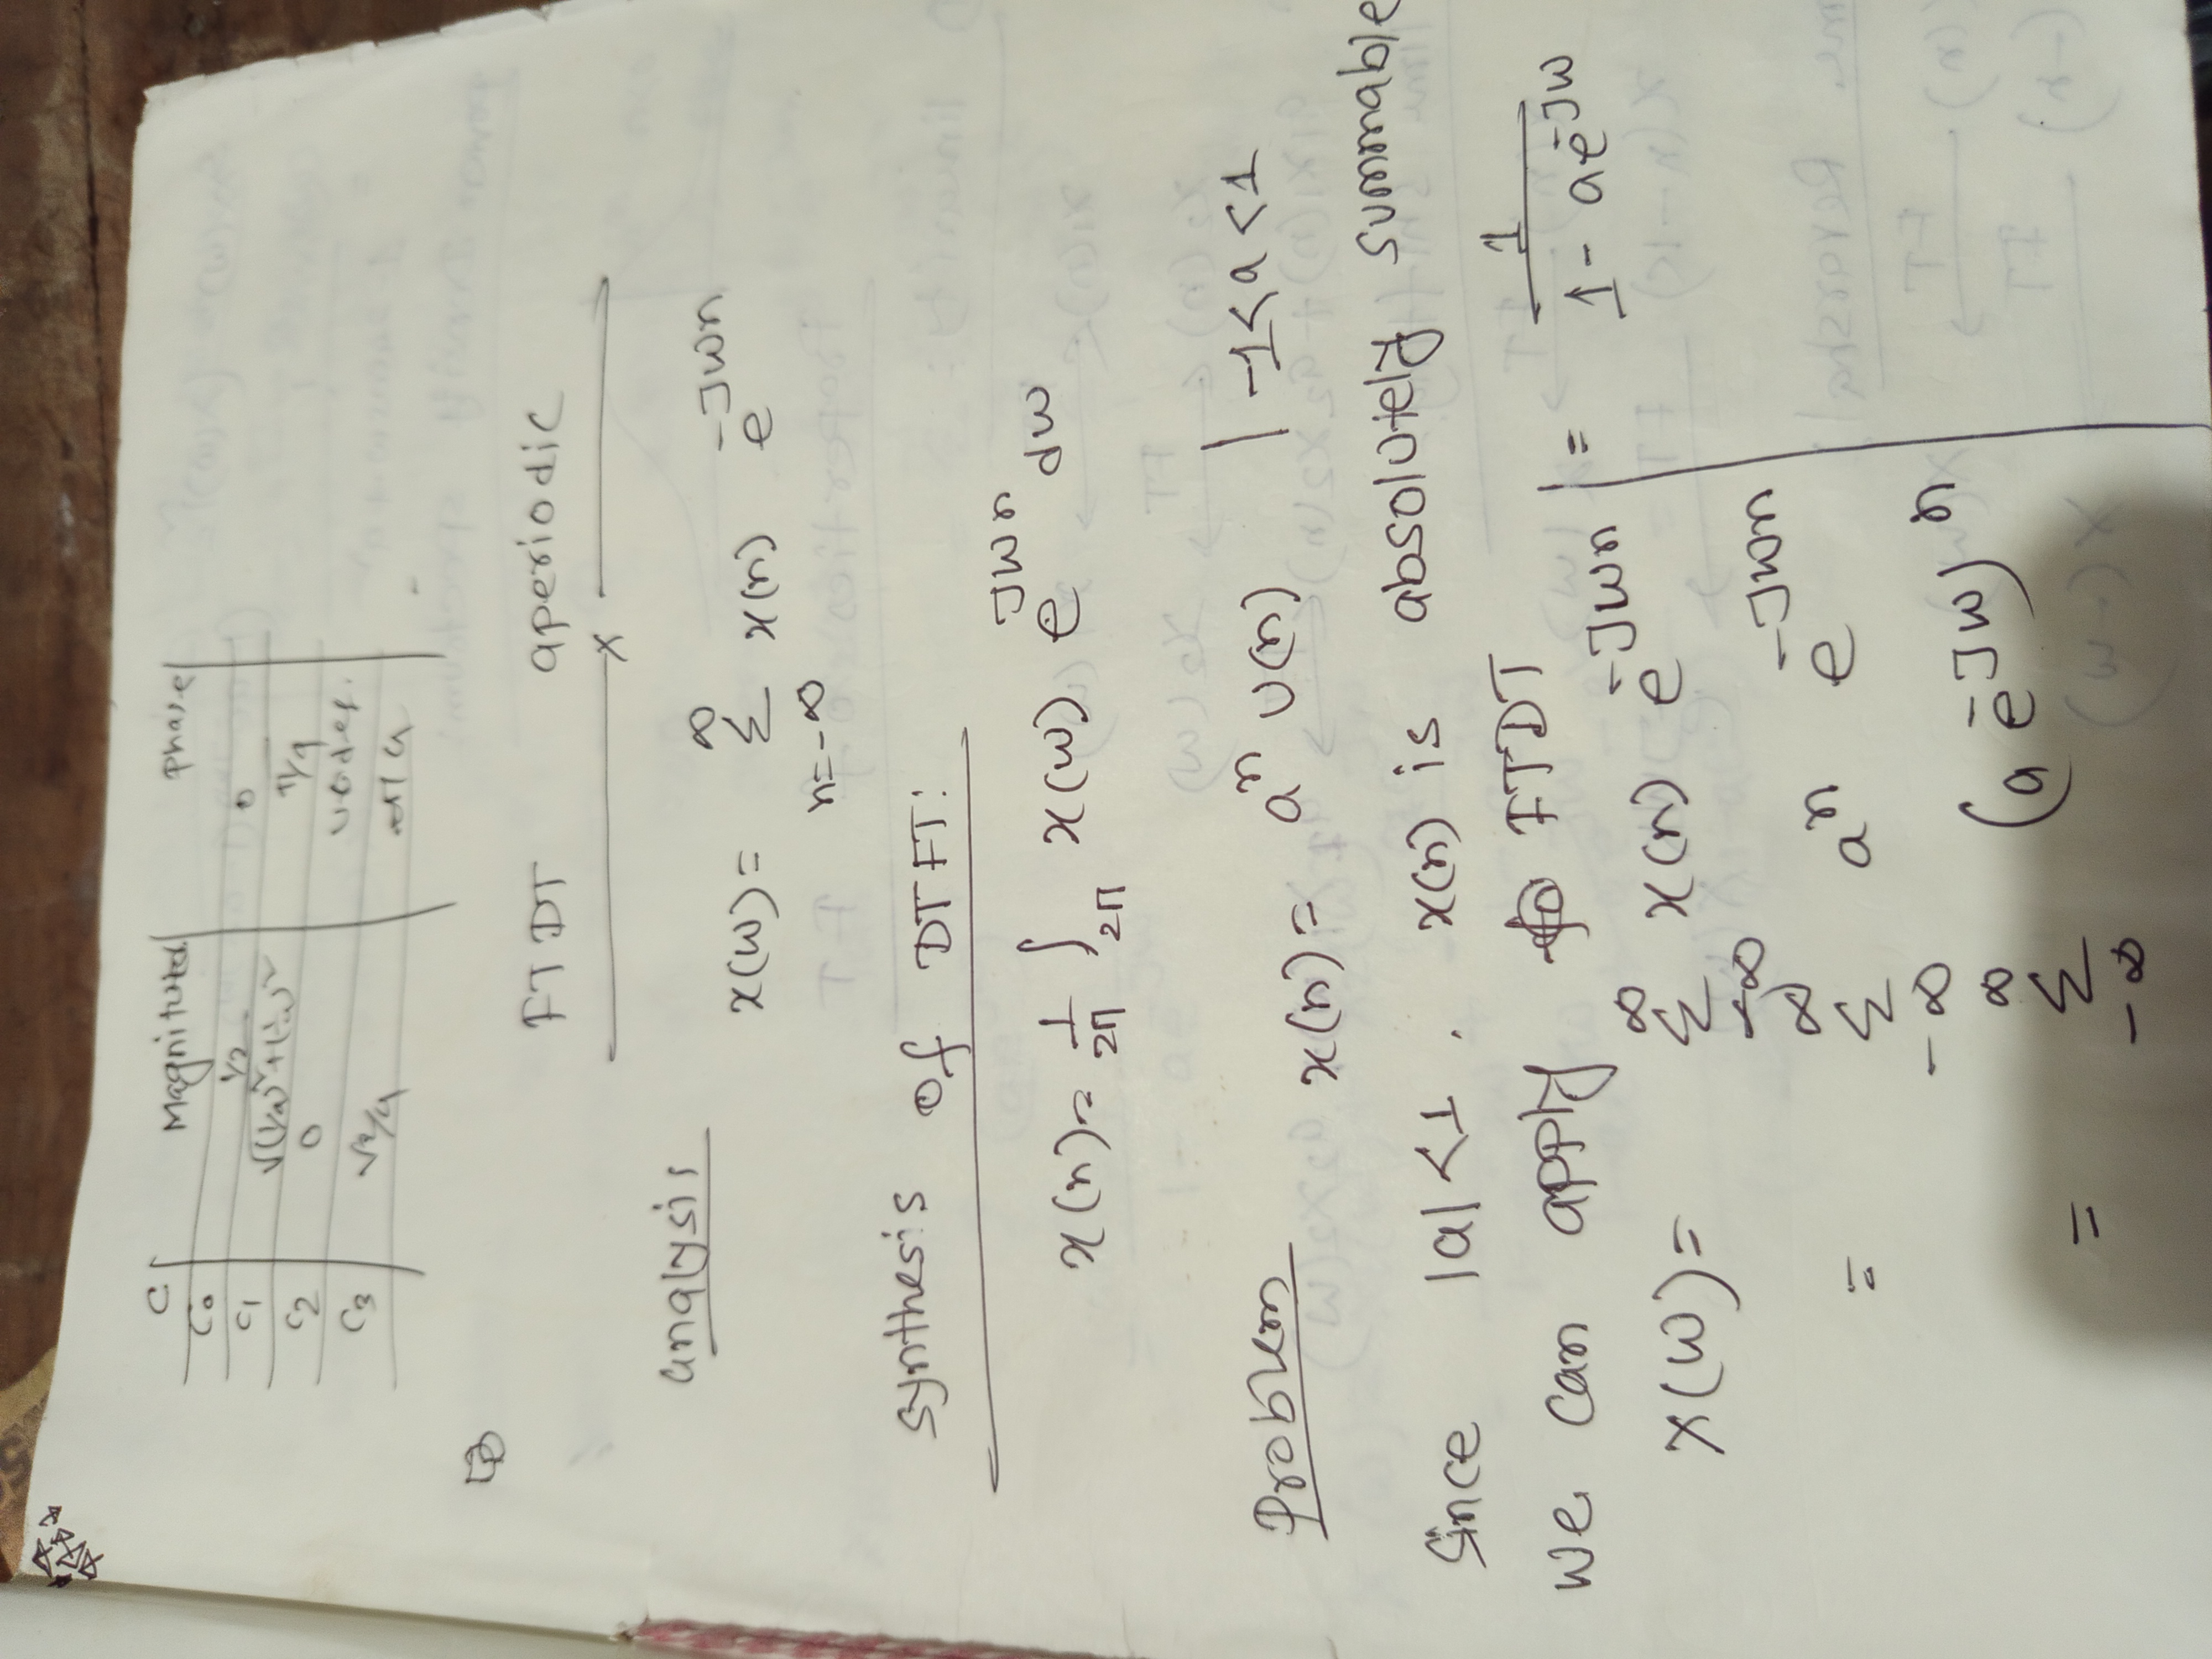 C | Magnitude | Phase
C0 | 1/2 | 0
C1 | √(1/4)²+(1/4)² | π/4
C2 | 0 | undef.
C3 | √2/4 | -π/4
FTDT aperiodic
x
analysis
x(ω) = ∞ Σ n=-∞ x(n) e^-jωn
synthesis of DTFT:
x(n) = 1/2π ∫2π x(ω) e^jωn dω
Problem x(n) = a^n u(n) | -1<a<1
Since |a|<1. x(n) is absolutely summable
we can apply FTDT
x(ω) = ∞ Σ -∞ x(n) e^-jωn
= ∞ Σ -∞ a^n e^-jωn
= ∞ Σ -∞ (a e^-jω)^n
= 1/1- ae^-jω